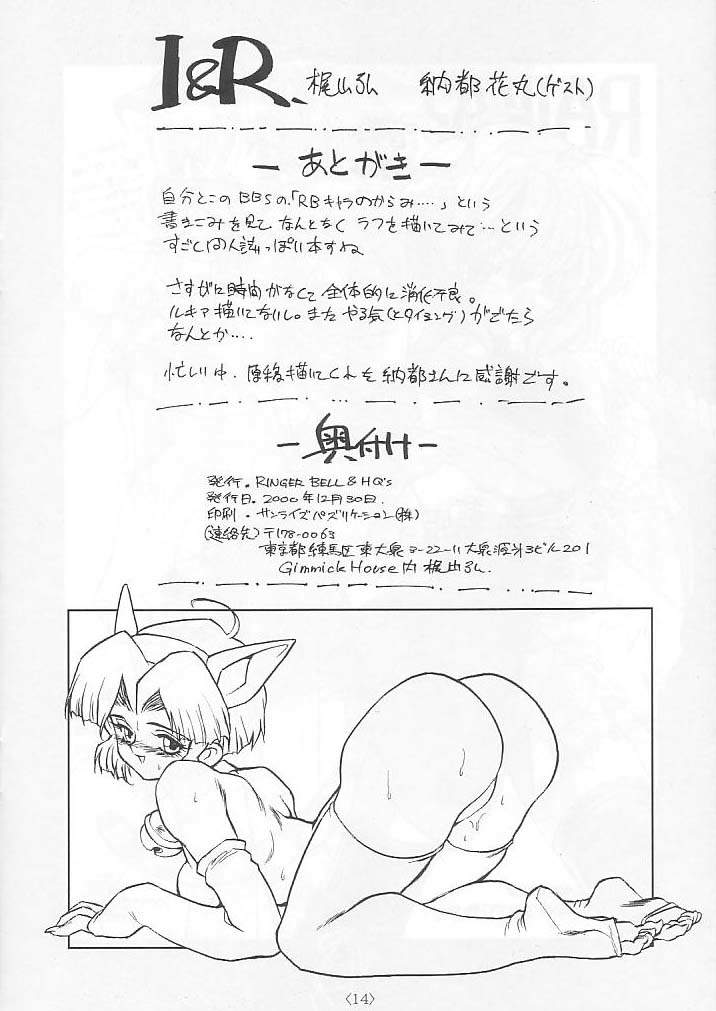 I&R. 梶山弘 納都花丸(ゲスト)
ーあとがきー
自分とこのBBSの、「RBキャラのからみ‥‥」という
書きこみを見てなんとなくラフを描いてみて‥‥という
すごし同人誌っぽい本すね
さすがに時間がなくて全体的に消化不良。
ルキア描いてないし。また やる気(とタイミング)がでたら
なんとか‥‥
忙しい中、原稿描いてくれた納都さんに感謝です。
ー奥付けー
発行。RINGER BELL & HQ's
発行日。2000年12月30日.
印刷・サンライズパブリケーション(株)
(連絡先)〒178-0063
東京都練馬区東大泉3-22-11大泉 3ビル201
Gimmick House内 梶山弘.
〈14〉